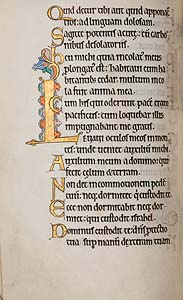 Quid detur tibi aut quid apponat
tibi: ad linguam dolosam.
Sagitte potentis acute: cum carbo
nibus desolatoriis.
Heu michi quia incolatus meus
plongatus est: habitaui cum ha
bitantibus cedar: multum inco
la fuit anima mea.
Cum his qui oderunt pacem eram
pacificus: cum loquebar illis
impugnabant me gratis.
Leuaui oculos meos in mon
tes: unde ueniet auxilium michi.
Auxilium meum a domino: qui
fecit celum & terram.
Non det in commotionem pedem
tuum: neq; dormitet qui custodit te.
Ecce non dormitabit neq; dor
miet: qui custodit israel.
Dominus custodit te dns protectio
tua: sup manum dexteram tuam.